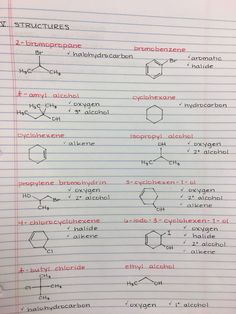 V. STRUCTURES
2-bromopropane bromobenzene
Br ✓ halohydrocarbon Br ✓ aromatic
H₃C CH₃ ✓ halide
t-amyl alcohol cyclohexane
CH₃ ✓ oxygen ✓ hydrocarbon
H₃C CH₃ ✓ 3° alcohol
OH
cyclohexene isopropyl alcohol
✓ alkene OH ✓ oxygen
H₃C CH₃ ✓ 2° alcohol
propylene bromohydrin 3-cyclohexen-1-ol
HO Br ✓ oxygen ✓ oxygen
CH₃ ✓ 2° alcohol OH ✓ 2° alcohol
✓ alkene
4-chlorocyclohexene 6-iodo-3-cyclohexen-1-ol
✓ halide I ✓ oxygen
✓ alkene ✓ halide
Cl OH ✓ 2° alcohol
✓ alkene
t-butyl chloride ethyl alcohol
CH₃
Cl CH₃ H₃C OH
CH₃
✓ halohydrocarbon ✓ oxygen ✓ 1° alcohol